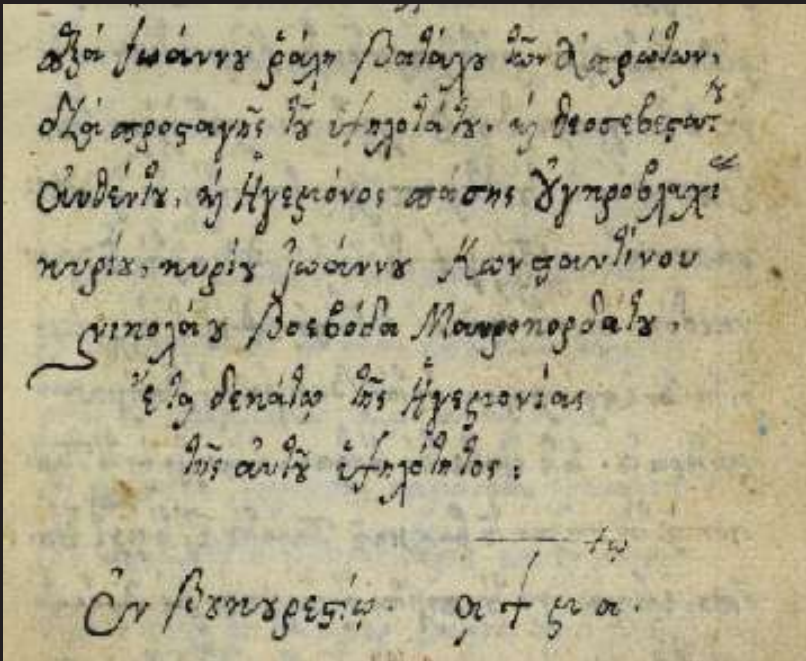 παρὰ Ἰωάννου ῥάλη Βατάλου τῶν πρώτων,
διὰ προσταγῆς τοῦ ὑψηλοτάτου, καὶ θεοσεβεστάτου
Αὐθέντου, καὶ Ἡγεμόνος πάσης Οὐγκροβλαχίας
κυρίου, κυρίου Ἰωάννου Κωνσταντίνου
νικολάου Βοεβόδα Μαυροκορδάτου,
Ἔτη δεκάτῳ τῆς Ἡγεμονίας
τῆς αὐτοῦ ὑψηλότητος:
Ἐν βουκουρεστίῳ. αψμα.